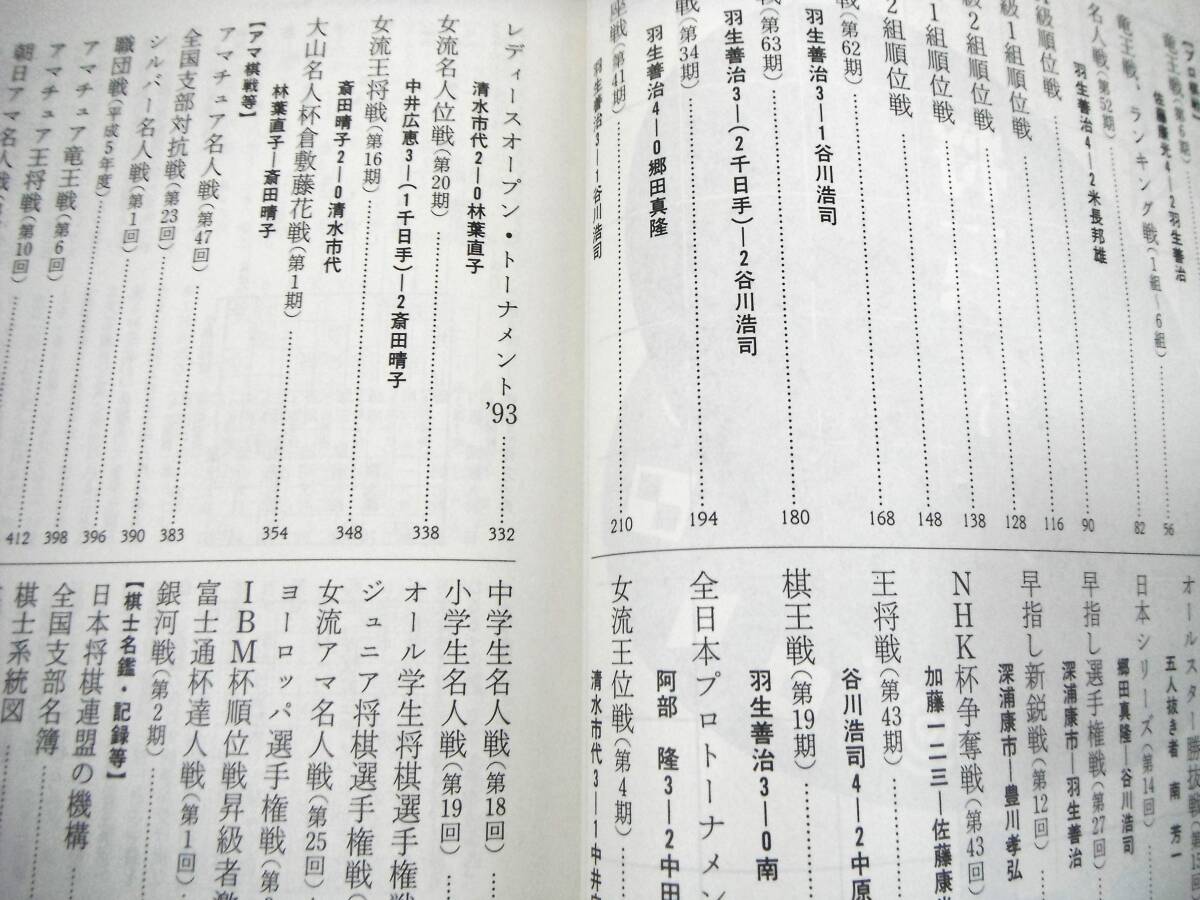 【プロ棋戦】
竜王戦(第6期)……56
佐藤康光4―2羽生善治
竜王戦、ランキング戦(1組〜6組)……82
名人戦(第52期)……90
羽生善治4―2米長邦雄
級順位戦……116
級1組順位戦……128
級2組順位戦……138
1組順位戦……148
2組順位戦……168
戦(第62期)……180
羽生善治3―1谷川浩司
戦(第63期)……194
羽生善治3―(2千日手)―2谷川浩司
戦(第34期)……210
羽生善治4―0郷田真隆
座戦(第41期)
羽生善治3―1谷川浩司
オールスター勝抜戦
五人抜き者 南 芳一
日本シリーズ(第14回)
郷田真隆―谷川浩司
早指し選手権戦(第27回)
深浦康市―羽生善治
早指し新鋭戦(第12回)
深浦康市―豊川孝弘
NHK杯争奪戦(第43回)
加藤一二三―佐藤康光
王将戦(第43期)
谷川浩司4―2中原
棋王戦(第19期)
羽生善治3―0南
全日本プロトーナメン
阿部 隆3―2中田
女流王位戦(第4期)
清水市代3―1中井
レディースオープン・トーナメント'93……332
清水市代2―0林葉直子
女流名人位戦(第20期)……338
中井広恵3―(1千日手)―2斎田晴子
女流王将戦(第16期)……348
斎田晴子2―0清水市代
大山名人杯倉敷藤花戦(第1期)……354
林葉直子―斎田晴子
【アマ棋戦等】
アマチュア名人戦(第47回)……383
全国支部対抗戦(第23回)……390
シルバー名人戦(第1回)……396
職団戦(平成5年度)……398
アマチュア竜王戦(第6回)……412
アマチュア王将戦(第10回)
朝日アマ名人戦
中学生名人戦(第18回)
小学生名人戦(第19回)
オール学生将棋選手権
ジュニア将棋選手権戦
女流アマ名人戦(第25回)
ヨーロッパ選手権戦(第
IBM杯順位戦昇級者激
富士通杯達人戦(第1回)
銀河戦(第2期)
【棋士名鑑・記録等】
日本将棋連盟の機構
全国支部名簿
棋士系統図